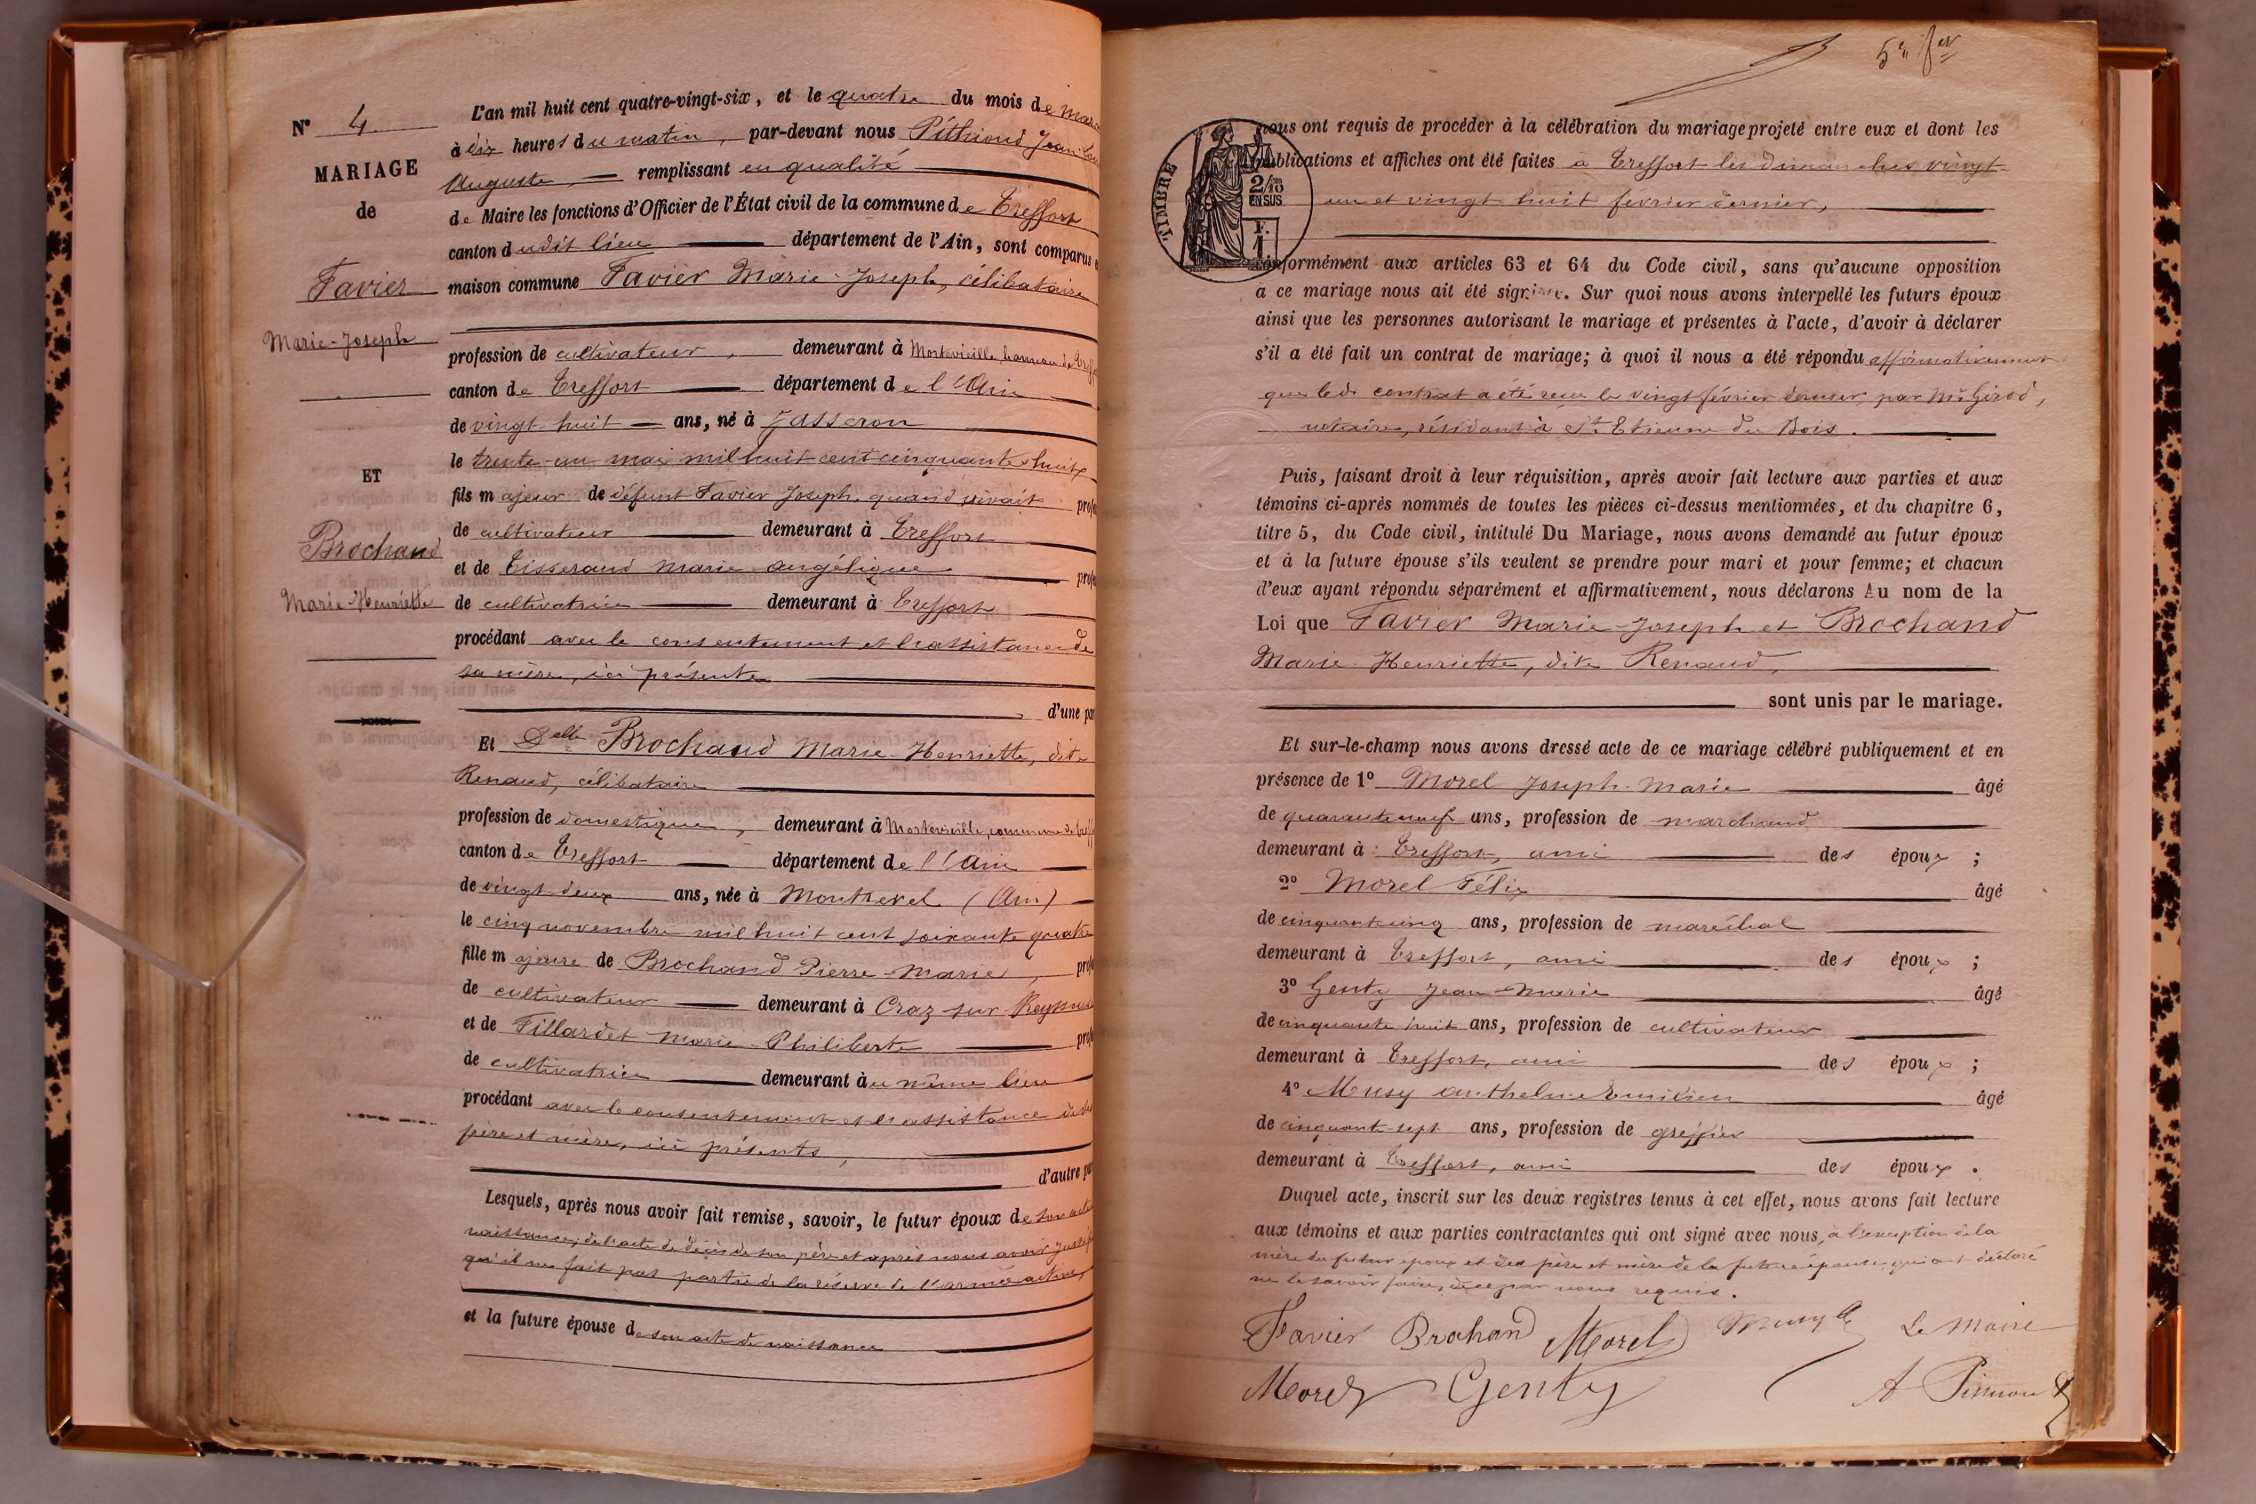 N° 4
MARIAGE
de
Favier
Marie-Joseph
ET
Brochand
Marie-Henriette
L'an mil huit cent quatre-vingt-six, et le quatre du mois de mars
à dix heures du matin, par-devant nous Pithioud Jean
Auguste, remplissant en qualité
de Maire les fonctions d'Officier de l'État civil de la commune de Treffort
canton dudit lieu département de l'Ain, sont comparus e
maison commune Favier Marie-Joseph, célibataire
profession de cultivateur, demeurant à Montevieille hameau de Treff
canton de Treffort département de l'Ain
de vingt-huit ans, né à Jasseron
le trente-un mai mil huit cent cinquante-huit
fils majeur de défunt Favier Joseph quand vivait profe
de cultivateur demeurant à Treffort
et de Tisserand Marie-angélique profe
de cultivatrice demeurant à Treffort
procédant avec le consentement et l'assistance de
sa mère, ici présente
d'une par
Et Delle Brochand Marie-Henriette, dite
Renaud, célibataire
profession de domestique, demeurant à commune de Treff
canton de Treffort département de l'Ain
de vingt-deux ans, née à Montrevel (Ain)
le cinq novembre mil huit cent soixante quatre
fille majeure de Brochand Pierre-Marie, profe
de cultivateur demeurant à Craz sur Reyssouze
et de Fillardet Marie-Philiberte profe
de cultivatrice demeurant au même lieu
procédant avec le consentement et l'assistance de ses
père et mère, ici présents,
d'autre par
Lesquels, après nous avoir fait remise, savoir, le futur époux de son acte
naissance, de l'acte de décès de son père et après nous avoir justifié
qu'il ne fait pas partie de la réserve de l'armée active,
et la future épouse de son acte de naissance
nous ont requis de procéder à la célébration du mariage projeté entre eux et dont les
publications et affiches ont été faites à Treffort les dimanches vingt
un et vingt huit février dernier,
TIMBRE
2/10
EN SUS
F.
1
conformément aux articles 63 et 64 du Code civil, sans qu'aucune opposition
à ce mariage nous ait été signifiée. Sur quoi nous avons interpellé les futurs époux
ainsi que les personnes autorisant le mariage et présentes à l'acte, d'avoir à déclarer
s'il a été fait un contrat de mariage; à quoi il nous a été répondu affirmativement
que led. contrat a été reçu le vingt février dernier, par Me Girod,
notaire, résidant à St Etienne du Bois.
Puis, faisant droit à leur réquisition, après avoir fait lecture aux parties et aux
témoins ci-après nommés de toutes les pièces ci-dessus mentionnées, et du chapitre 6,
titre 5, du Code civil, intitulé Du Mariage, nous avons demandé au futur époux
et à la future épouse s'ils veulent se prendre pour mari et pour femme; et chacun
d'eux ayant répondu séparément et affirmativement, nous déclarons Au nom de la
Loi que Favier Marie-Joseph et Brochand
Marie-Henriette, dite Renaud,
sont unis par le mariage.
Et sur-le-champ nous avons dressé acte de ce mariage célébré publiquement et en
présence de 1° Morel Joseph-Marie âgé
de quarante neuf ans, profession de marchand
demeurant à Treffort, ami des époux ;
2° Morel Félix âgé
de cinquante cinq ans, profession de maréchal
demeurant à Treffort, ami des époux ;
3° Genty Jean-Marie âgé
de cinquante huit ans, profession de cultivateur
demeurant à Treffort, ami des époux ;
4° Musy anthelme Emilien âgé
de cinquante-sept ans, profession de greffier
demeurant à Treffort, ami des époux .
Duquel acte, inscrit sur les deux registres tenus à cet effet, nous avons fait lecture
aux témoins et aux parties contractantes qui ont signé avec nous, à l'exception de la
mère du futur époux et des père et mère de la future épouse qui ont déclaré
ne le savoir faire, de ce par nous requis.
Favier Brochand Morel Musy Le Maire
Morel Genty